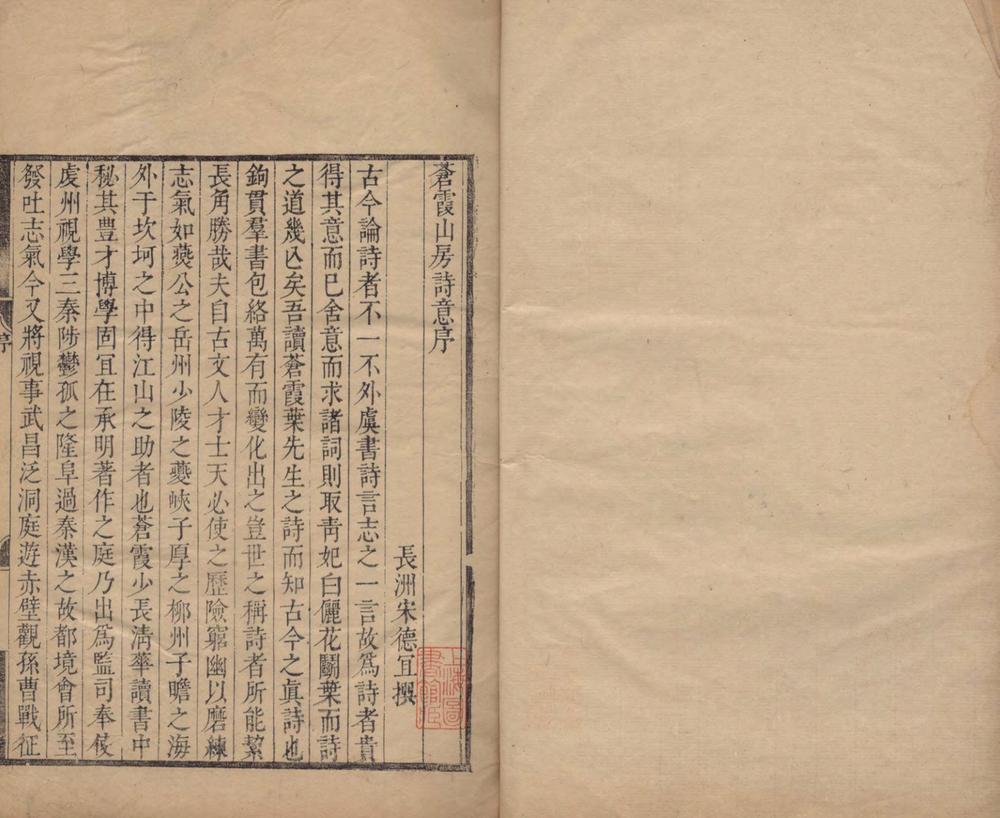 蒼霞山房詩意序
長洲宋德宜撰
古今論詩者不一不外虞書詩言志之一言故爲詩者貴
得其意而已舍意而求諸詞則取靑妃白儷花鬬葉而詩
之道幾亾矣吾讀蒼霞葉先生之詩而知古今之眞詩也
鉤貫羣書包絡萬有而變化出之豈世之稱詩者所能絜
長角勝哉夫自古文人才士天必使之歷險窮幽以磨練
志氣如燕公之岳州少陵之夔峽子厚之柳州子瞻之海
外于坎坷之中得江山之助者也蒼霞少長淸華讀書中
秘其豊才博學固宜在承明著作之庭乃出爲監司奉使
虔州視學三秦陟鬱孤之隆阜過秦漢之故都境會所至
發吐志氣今又將視事武昌泛洞庭遊赤壁觀孫曹戰征
序
上海圖書館藏